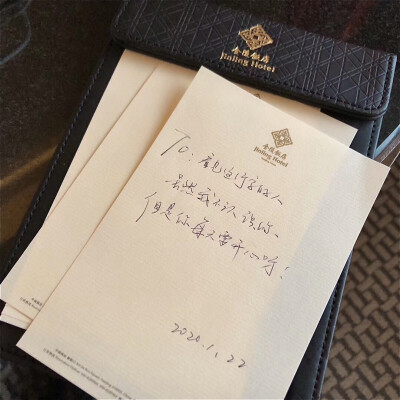 金陵饭店
Jinling Hotel
金陵饭店
Jinling Hotel
To：看见这行字的人
虽然我不认识你、
但是你每天要开心呀！
2020.1.22